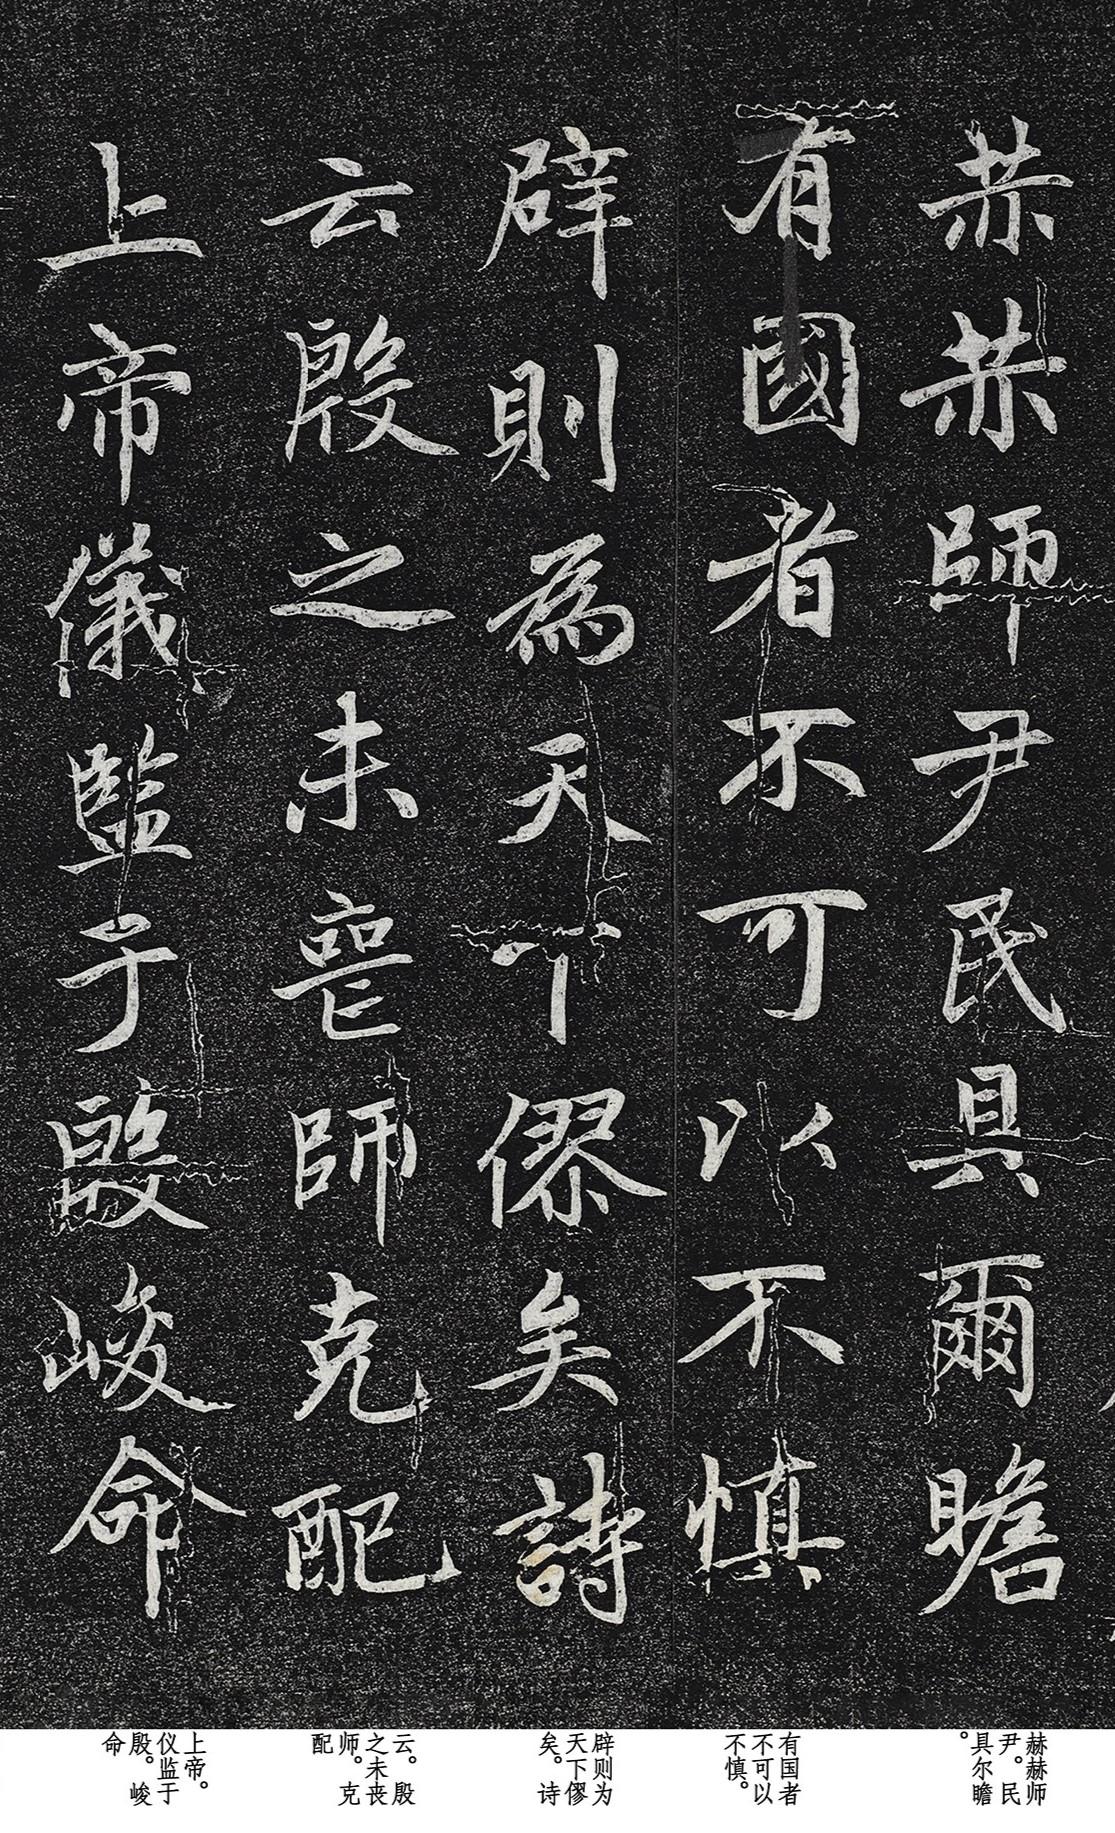 赫赫師尹民具爾瞻
有國者不可以不慎
辟則為天下僇矣詩
云殷之未喪師克配
上帝儀監于殷峻命
赫赫师
尹。民
具尔瞻
。
有国者
不可以
不慎。
辟则为
天下僇
矣。诗
云。殷
之未丧
师。克
配
上帝。
仪监于
殷。峻
命